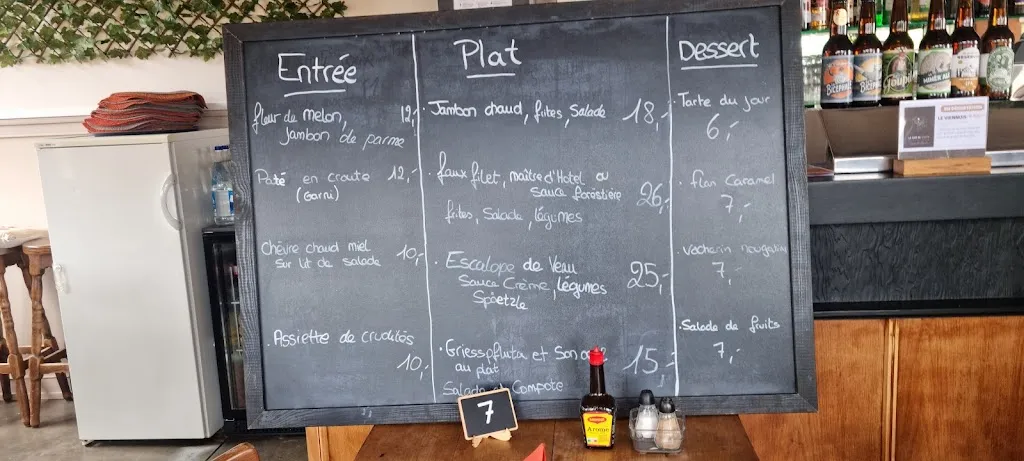 Entrée
fleur de melon, 12,-
jambon de parme
Paté en croute 12,-
(Garni)
Chèvre chaud miel 10,-
sur lit de salade
Assiette de crudités
10,-
Plat
. Jambon chaud, frites, Salade 18,-
. faux filet, maître d'Hotel ou
sauce forestière 26,-
frites, salade, légumes
. Escalope de Veau
Sauce Crème, légumes 25,-
Spaetzle
. Griespfluta et Son 15,-
au plat
Salade et Compote
Dessert
. Tarte du jour
6,-
. flan Caramel
7,-
. Vacherin nougatine
7,-
. Salade de fruits
7,-
7
MAGGI
Arome